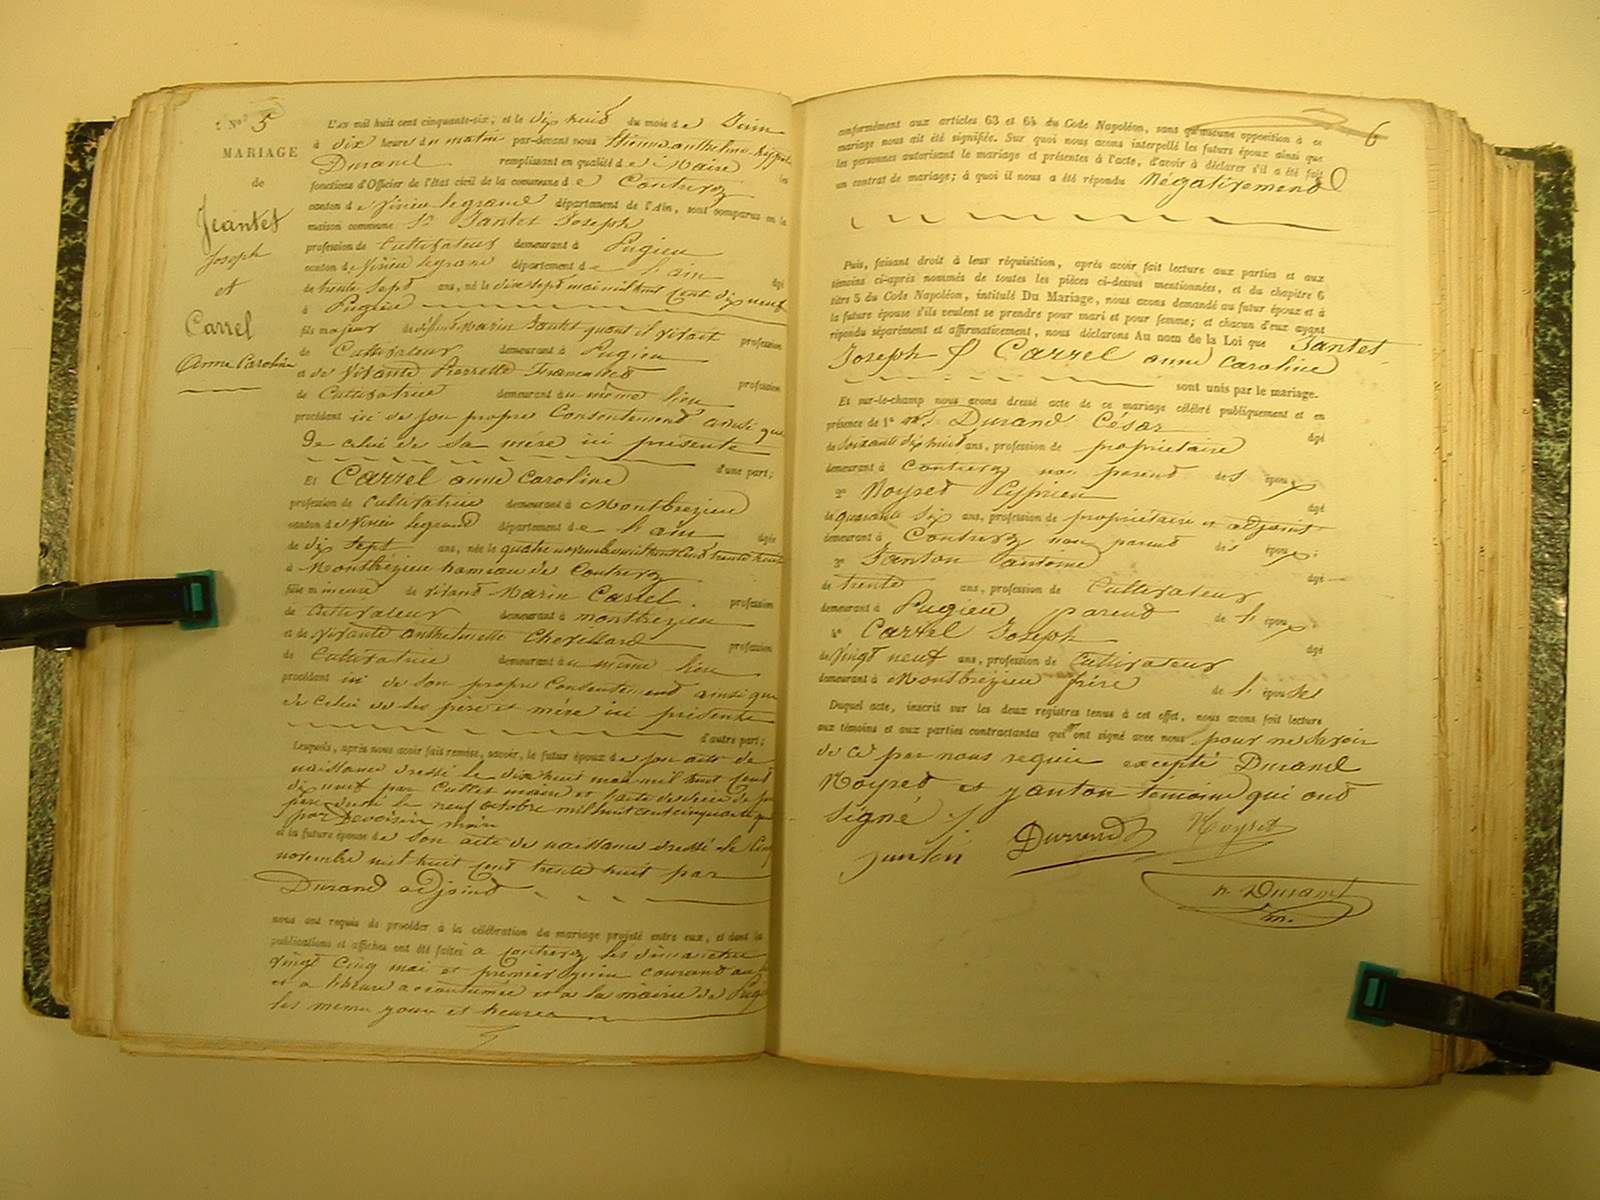 N° 5
MARIAGE
de
Jeantet
Joseph
et
Carrel
Anne Caroline
L'AN mil huit cent cinquante-six, et le dix huit du mois de Juin
à dix heures du matin par-devant nous Thimo anthelme hyppolite
Durand remplissant en qualité de Maire les
fonctions d'Officier de l'état civil de la commune de Contrevoz
canton de Virieu le grand département de l'Ain, sont comparus en la
maison commune Sr Jantet Joseph
profession de Cultivateur demeurant à Pugieu
canton de Virieu le grand département de l'ain âgé
de trente sept ans, né le dix sept mai mil huit Cent dix neuf
à Pugieu
fils majeur de défunt Marin Jantet quand il vivait profession
de Cultivateur demeurant à Pugieu
et de vivante Pierrette profession
de Cultivatrice demeurant au même lieu
procédant ici de son propre Consentement ainsi que
de celui de sa mère ici présente
d'une part;
Et Carrel anne Caroline
profession de Cultivatrice demeurant à Montbrezieu
canton de Virieu le grand département de l'ain âgée
de dix sept ans, née le quatre novembre mil huit cent trente huit
à Montbrezieu hameau de Contrevoz
fille mineure de vivant Marin Carrel profession
de Cultivateur demeurant à montbrezieu
et de vivante anthelmette Chevillard profession
de Cultivatrice demeurant au même lieu
procédant ici de son propre Consentement ainsi que
de celui de ses père et mère ici présente
d'autre part;
Lesquels, après nous avoir fait remise, savoir, le futur époux de son acte de
naissance dressé le dix huit mai mil huit Cent
dix neuf par Cullet maire et l'acte de décès de son
père dressé le neuf octobre mil huit cent cinquante
par Devoisin maire
et la future épouse de son acte de naissance dressé le cinq
novembre mil huit Cent trente huit par
Durand adjoint
nous ont requis de procéder à la célébration du mariage projeté entre eux, et dont les
publications et affiches ont été faites à Contrevoz les dimanches
vingt cinq mai et premier juin courant
et à l'heure accoutumée et à la mairie de Pugieu
les meme jour et heures
6
conformément aux articles 63 et 64 du Code Napoléon, sans qu'aucune opposition à ce
mariage nous ait été signifiée. Sur quoi nous avons interpellé les futurs époux ainsi que
les personnes autorisant le mariage et présentes à l'acte, d'avoir à déclarer s'il a été fait
un contrat de mariage; à quoi il nous a été répondu Négativement
Puis, faisant droit à leur réquisition, après avoir fait lecture aux parties et aux
témoins ci-après nommés de toutes les pièces ci-dessus mentionnées, et du chapitre 6
titre 5 du Code Napoléon, intitulé Du Mariage, nous avons demandé au futur époux et à
la future épouse s'ils veulent se prendre pour mari et pour femme; et chacun d'eux ayant
répondu séparément et affirmativement, nous déclarons Au nom de la Loi que Jantet
Joseph & Carrel anne Caroline
sont unis par le mariage.
Et sur-le-champ nous avons dressé acte de ce mariage célébré publiquement et en
présence de 1° Mr Durand César âgé
de soixante dix huit ans, profession de propriétaire
demeurant à Contrevoz non parent des époux
2° Noyret Cyprien âgé
de quarante six ans, profession de propriétaire et adjoint
demeurant à Contrevoz non parent des époux;
3° Janton antoine âgé
de trente ans, profession de Cultivateur
demeurant à Pugieu parent de l'époux
4° Carrel Joseph âgé
de vingt neuf ans, profession de Cultivateur
demeurant à Montbrezieu frère de l'épouse
Duquel acte, inscrit sur les deux registres tenus à cet effet, nous avons fait lecture
aux témoins et aux parties contractantes qui n'ont signé avec nous pour ne savoir
de ce par nous requis excepté Durand
Noyret et janton temoins qui ont
signé
janton Durand Noyret
h. Durand
m.